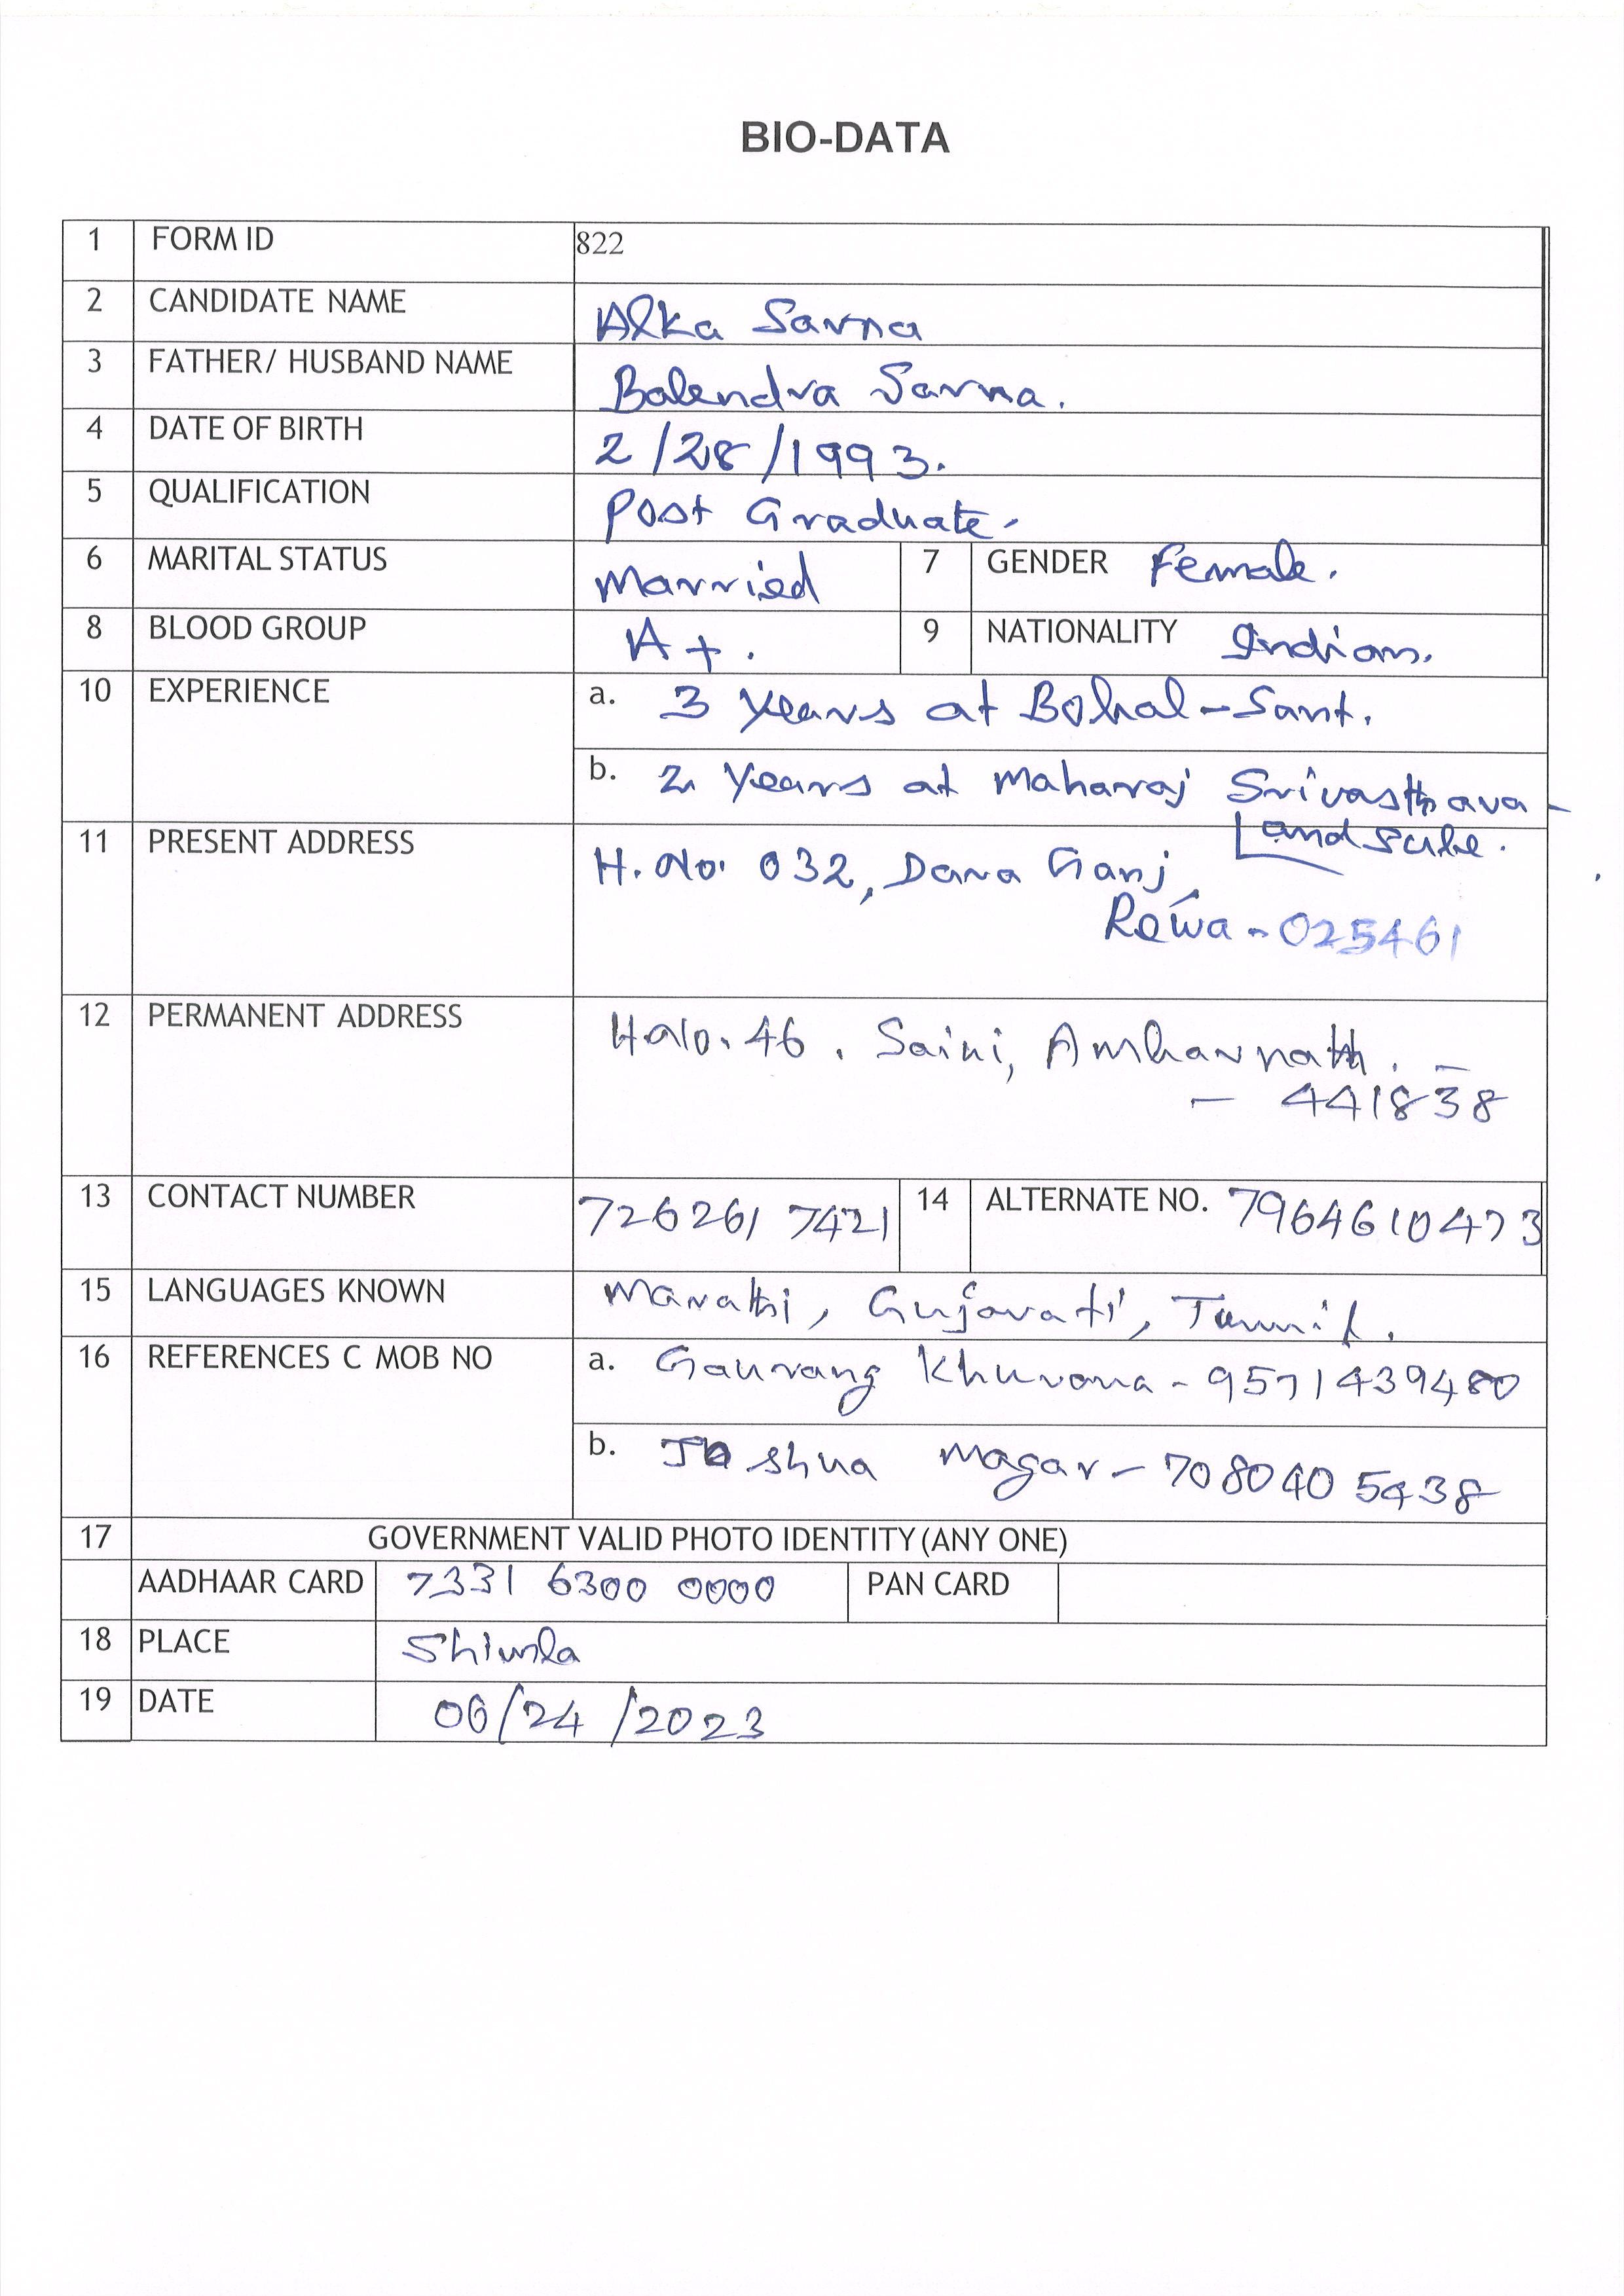 BIO-DATA
1 FORM ID 822
2 CANDIDATE NAME Alka Sarna
3 FATHER/ HUSBAND NAME Balendra Sarna.
4 DATE OF BIRTH 2/28/1993.
5 QUALIFICATION Post Graduate.
6 MARITAL STATUS Married 7 GENDER Female.
8 BLOOD GROUP A+. 9 NATIONALITY Indian.
10 EXPERIENCE a. 3 Years at Bohal-Sant.
b. 2 Years at Maharaj Srivasthava-
Land
11 PRESENT ADDRESS H.No. 032, Dara Ganj,
Rewa - 025461
12 PERMANENT ADDRESS H.No. 46. Saini, Ambarnath. -
- 441838
13 CONTACT NUMBER 7262617421 14 ALTERNATE NO. 7964610473
15 LANGUAGES KNOWN Marathi, Gujarati, Tamil.
16 REFERENCES C MOB NO a. Gaurang Khurana - 9571439480
b. Joshua Magar - 7080405438
17 GOVERNMENT VALID PHOTO IDENTITY (ANY ONE)
AADHAAR CARD 7331 6300 0000 PAN CARD
18 PLACE Shimla
19 DATE 06/24/2023